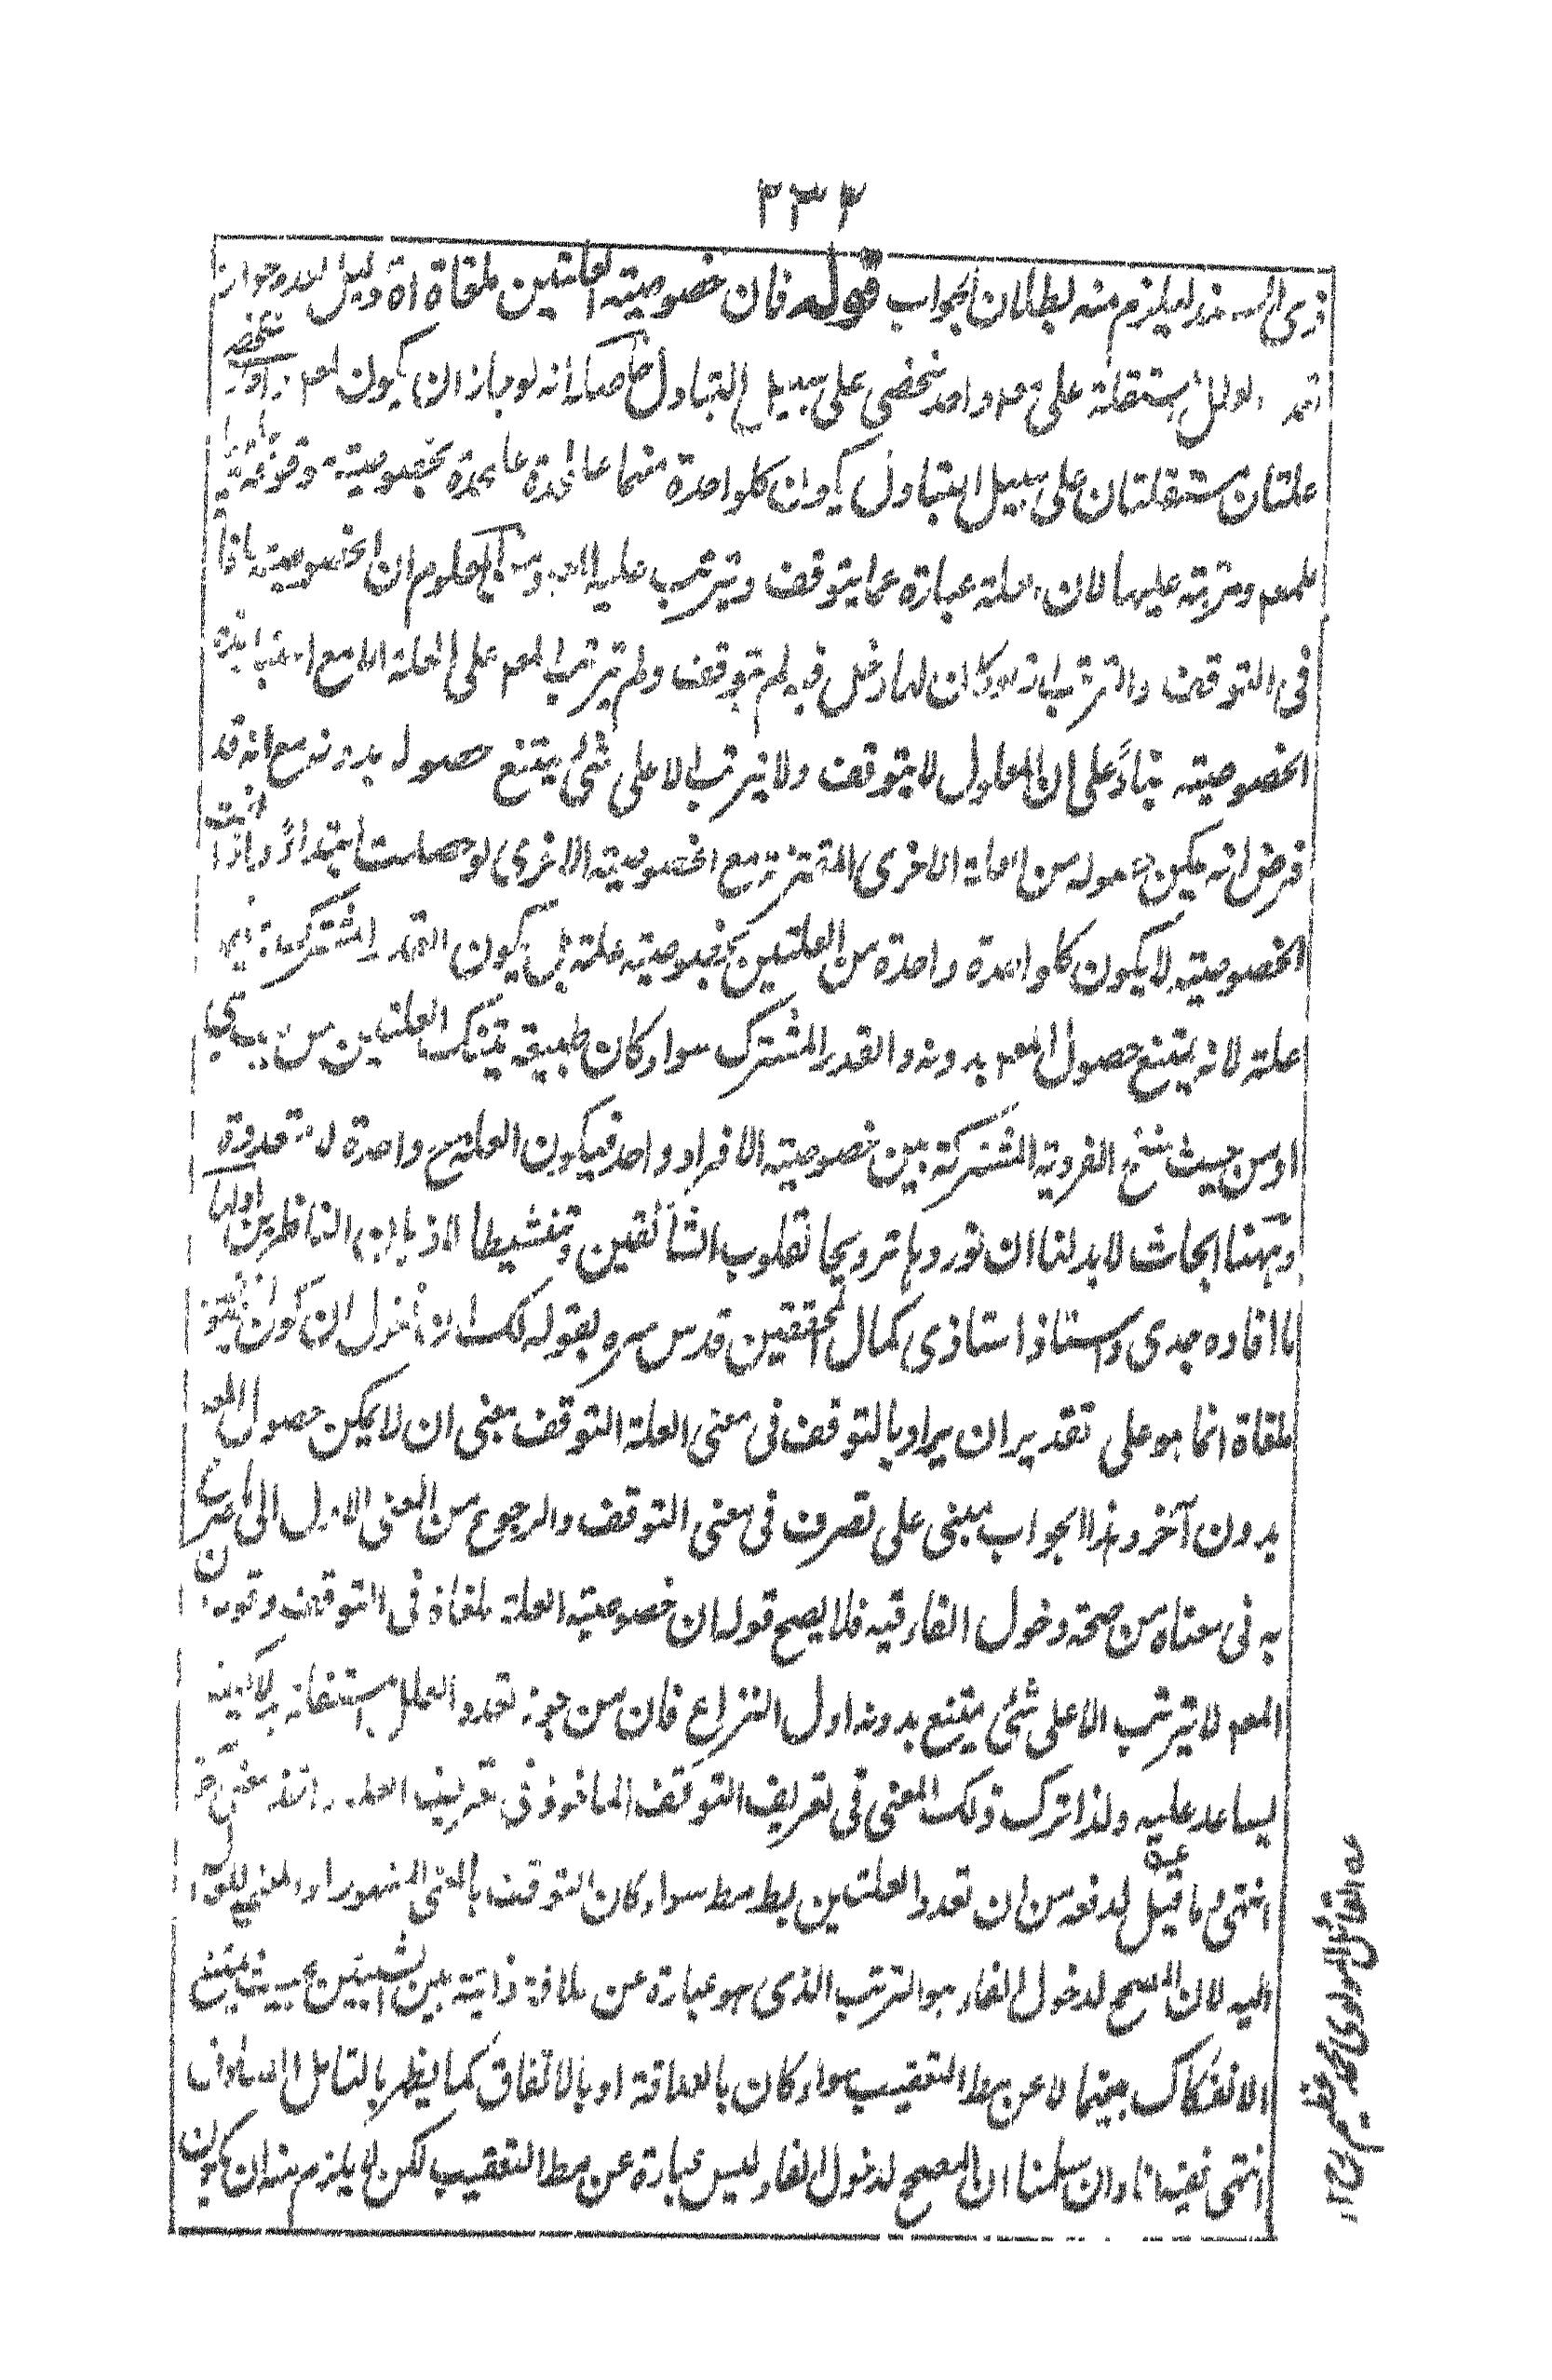 ٢٣٣
ذى السند لم يلزم منه بطلان الجواب قوله فان خصوصية العلتين ملغاة اه دليل لعدم جواز
العلل المستقلة على مع واحد شخصى على سبيل التبادل حاصله انه لو جاز ان يكون لمع واحد شخصى
علتان مستقلتان على سبيل التبادل يكون كل واحدة منهما عليحدة عليحدة بخصوصيته موقوفة
للمع ومترتبة عليها لان العلة عبارة عما يتوقف ويترتب عليه المع ومن المعلوم ان الخصوصية ملغاة
فى التوقف والترتب اذ لو كان لها دخل فيه لم يتوقف ولم يترتب المع على العلة الا مع
الخصوصية بناءً على ان المعلول لا يتوقف ولا يترتب الا على شئ يمتنع حصوله بدونه مع انه قد
فرض انه يمكن حصوله من العلة الاخرى المقترنة مع الخصوصية الاخرى لو حصلت ابتداءً واذا الغيت
الخصوصية لا يكون كل واحدة واحدة من العلتين بخصوصيته علة بل يكون القدر المشترك بينهما
علة لانه يمتنع حصول المع بدونه والقدر المشترك سواء كان طبيعة تينك العلتين من حيث هى
او من حيث الفردية المشتركة بين خصوصية الافراد واحد فيكون العلة ح واحدة لا متعددة
وههنا ابحاث لا بد لنا ان نوردها ترويحا لقلوب الشائقين وتنشيطا لاذهان الناظرين اولها
ما افاده جدى واستاذ استاذى كمال المحققين قدس سره بقوله لك ان تقول ان كون الخصوصية
ملغاة انما هو على تقدير ان يراد بالتوقف فى معنى العلة التوقف بمعنى ان لا يمكن حصول المع
بدون آخر وهذا الجواب مبنى على تصرف فى معنى التوقف والرجوع من المعنى الاول الى ما صرح
به فى معناه من صحة دخول الفاء فيه فلا يصح قوله ان خصوصية العلة ملغاة فى التوقف وقوله ان
المع لا يترتب الا على شئ يمتنع بدونه اول النزاع فان من جوز تعدد العلل المستقلة
يساعد عليه ولذا ترك ذلك المعنى فى تعريف التوقف الماخوذ فى تعريف العلة واخذ معنى آخر
انتهى وما قيل لدفعه من ان تعدد العلتين بط مط سواء كان التوقف بالمعنى المشهور او المعنى المؤل
اليه لان المصحح لدخول الفاء هو الترتب الذى هو عبارة عن علاقة ذاتية بين الشيئين بحيث يمتنع
الانفكاك بينهما لا عن مط التعقيب سواء كان بالعلاقة او بالاتفاق كما يظهر بالتامل الصادق
انتهى ففيه انا وان سلمنا ان المصحح لدخول الفاء ليس عبارة عن مط التعقيب لكن لا يلزم منه ان يكون